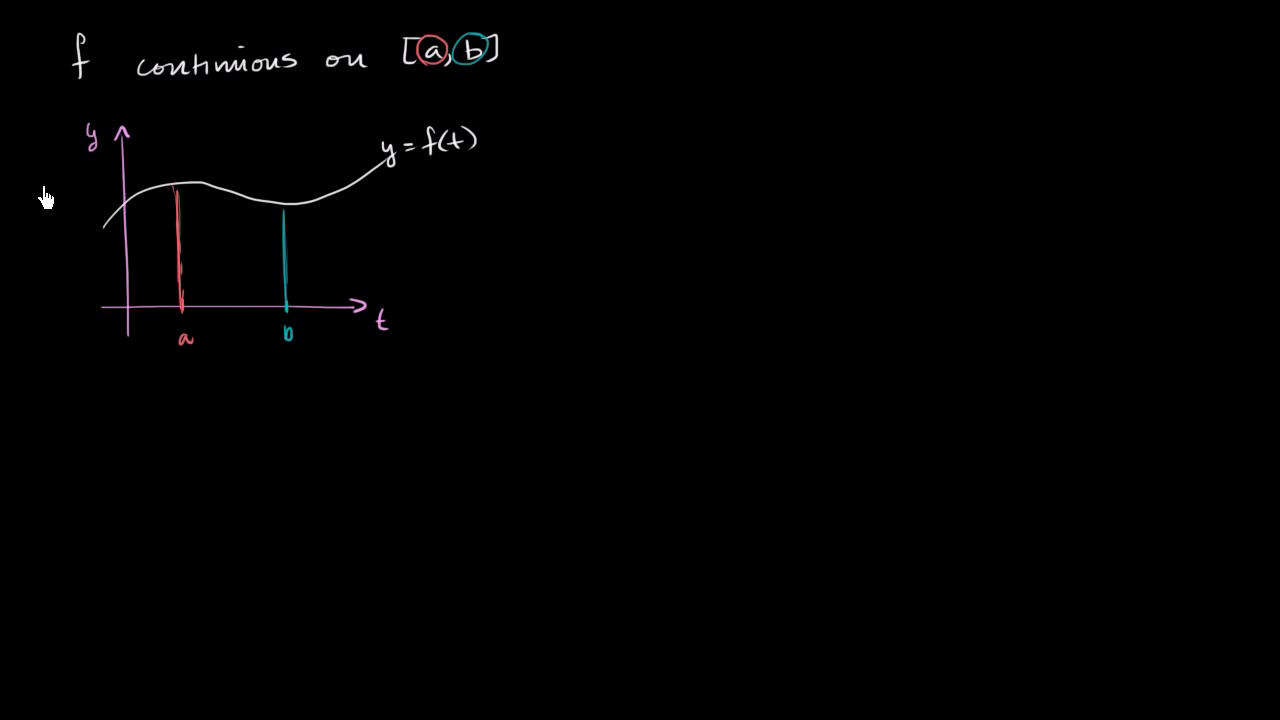 f continuous on [a, b]
y
y = f(t)
t
a b